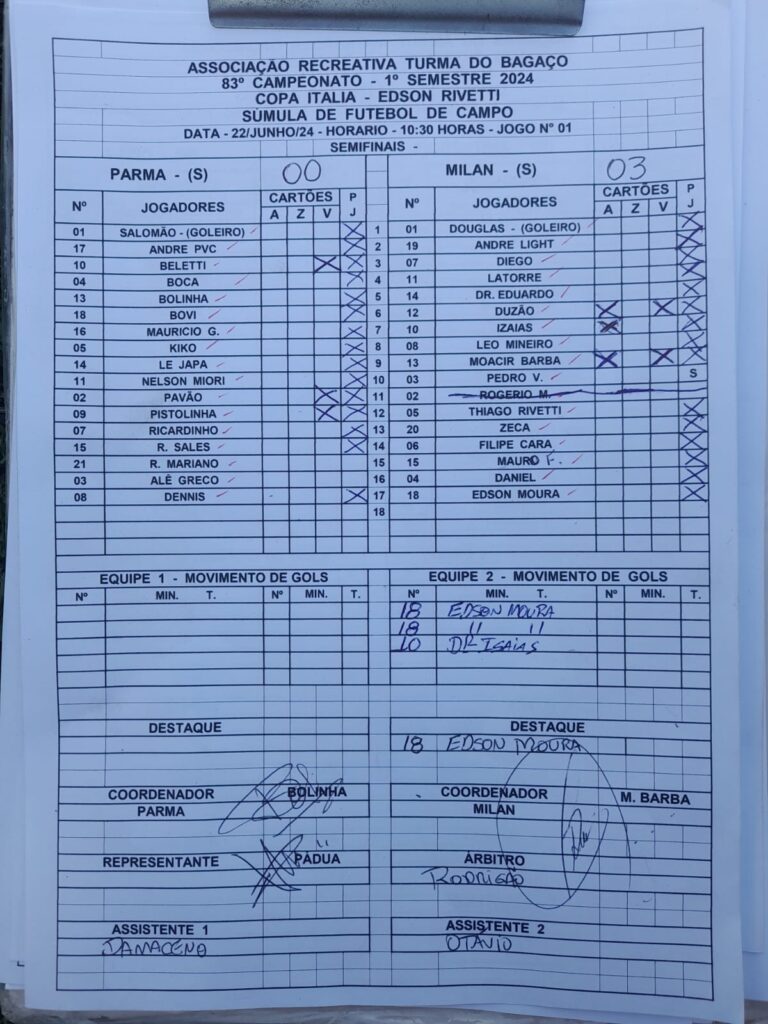 ASSOCIAÇÃO RECREATIVA TURMA DO BAGAÇO
83º CAMPEONATO - 1º SEMESTRE 2024
COPA ITALIA - EDSON RIVETTI
SÚMULA DE FUTEBOL DE CAMPO
DATA - 22/JUNHO/24 - HORARIO - 10:30 HORAS - JOGO Nº 01
SEMIFINAIS -
PARMA - (S) 00 MILAN - (S) 03
Nº JOGADORES CARTÕES P J Nº JOGADORES CARTÕES P J
A Z V A Z V
01 SALOMÃO - (GOLEIRO) X 1 01 DOUGLAS - (GOLEIRO) X
17 ANDRE PVC X 2 19 ANDRE LIGHT X
10 BELETTI X X 3 07 DIEGO X
04 BOCA X 4 11 LATORRE X
13 BOLINHA X 5 14 DR. EDUARDO X
18 BOVI X 6 12 DUZÃO X X X
16 MAURICIO G. X 7 10 IZAIAS X X
05 KIKO X 8 08 LEO MINEIRO X
14 LE JAPA X 9 13 MOACIR BARBA X X X
11 NELSON MIORI X 10 03 PEDRO V. S
02 PAVÃO X X 11 02 ROGERIO M.
09 PISTOLINHA X X 12 05 THIAGO RIVETTI X
07 RICARDINHO X 13 20 ZECA X
15 R. SALES X 14 06 FILIPE CARA X
21 R. MARIANO 15 15 MAURO F. X
03 ALÊ GRECO 16 04 DANIEL X
08 DENNIS X 17 18 EDSON MOURA X
18
EQUIPE 1 - MOVIMENTO DE GOLS EQUIPE 2 - MOVIMENTO DE GOLS
Nº MIN. T. Nº MIN. T. Nº MIN. T. Nº MIN. T.
18 EDSON MOURA
18 " "
10 DR ISAIAS
DESTAQUE DESTAQUE
18 EDSON MOURA
COORDENADOR BOLINHA COORDENADOR M. BARBA
PARMA MILAN
REPRESENTANTE PÁDUA ÁRBITRO
RODRIGÃO
ASSISTENTE 1 ASSISTENTE 2
DAMACENO OTÁVIO